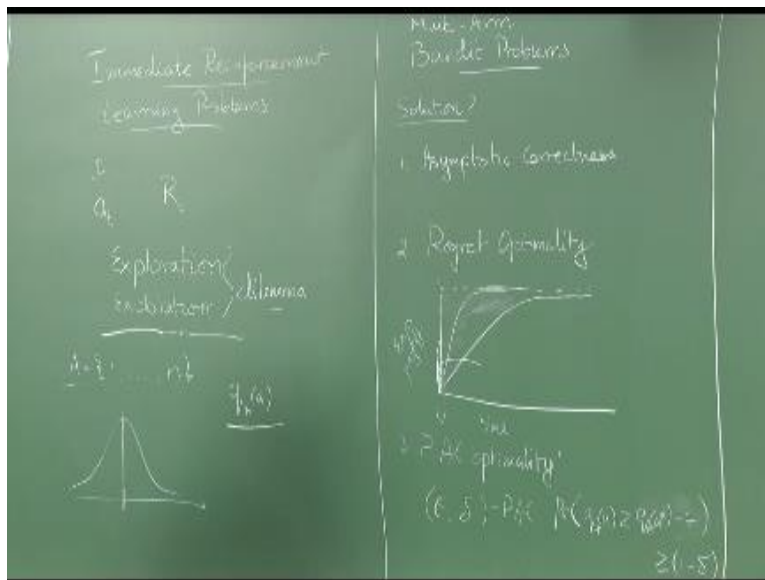 Immediate Reinforcement
Learning Problems
a_t R
Exploration
dilemma
q_*(a)
Mult-Arm
Bandit Problems
Solution?
1. Asymptotic Correctness
2 Regret Optimality
3 PAC optimality
(ε, δ)-PAC
≥ (1-δ)